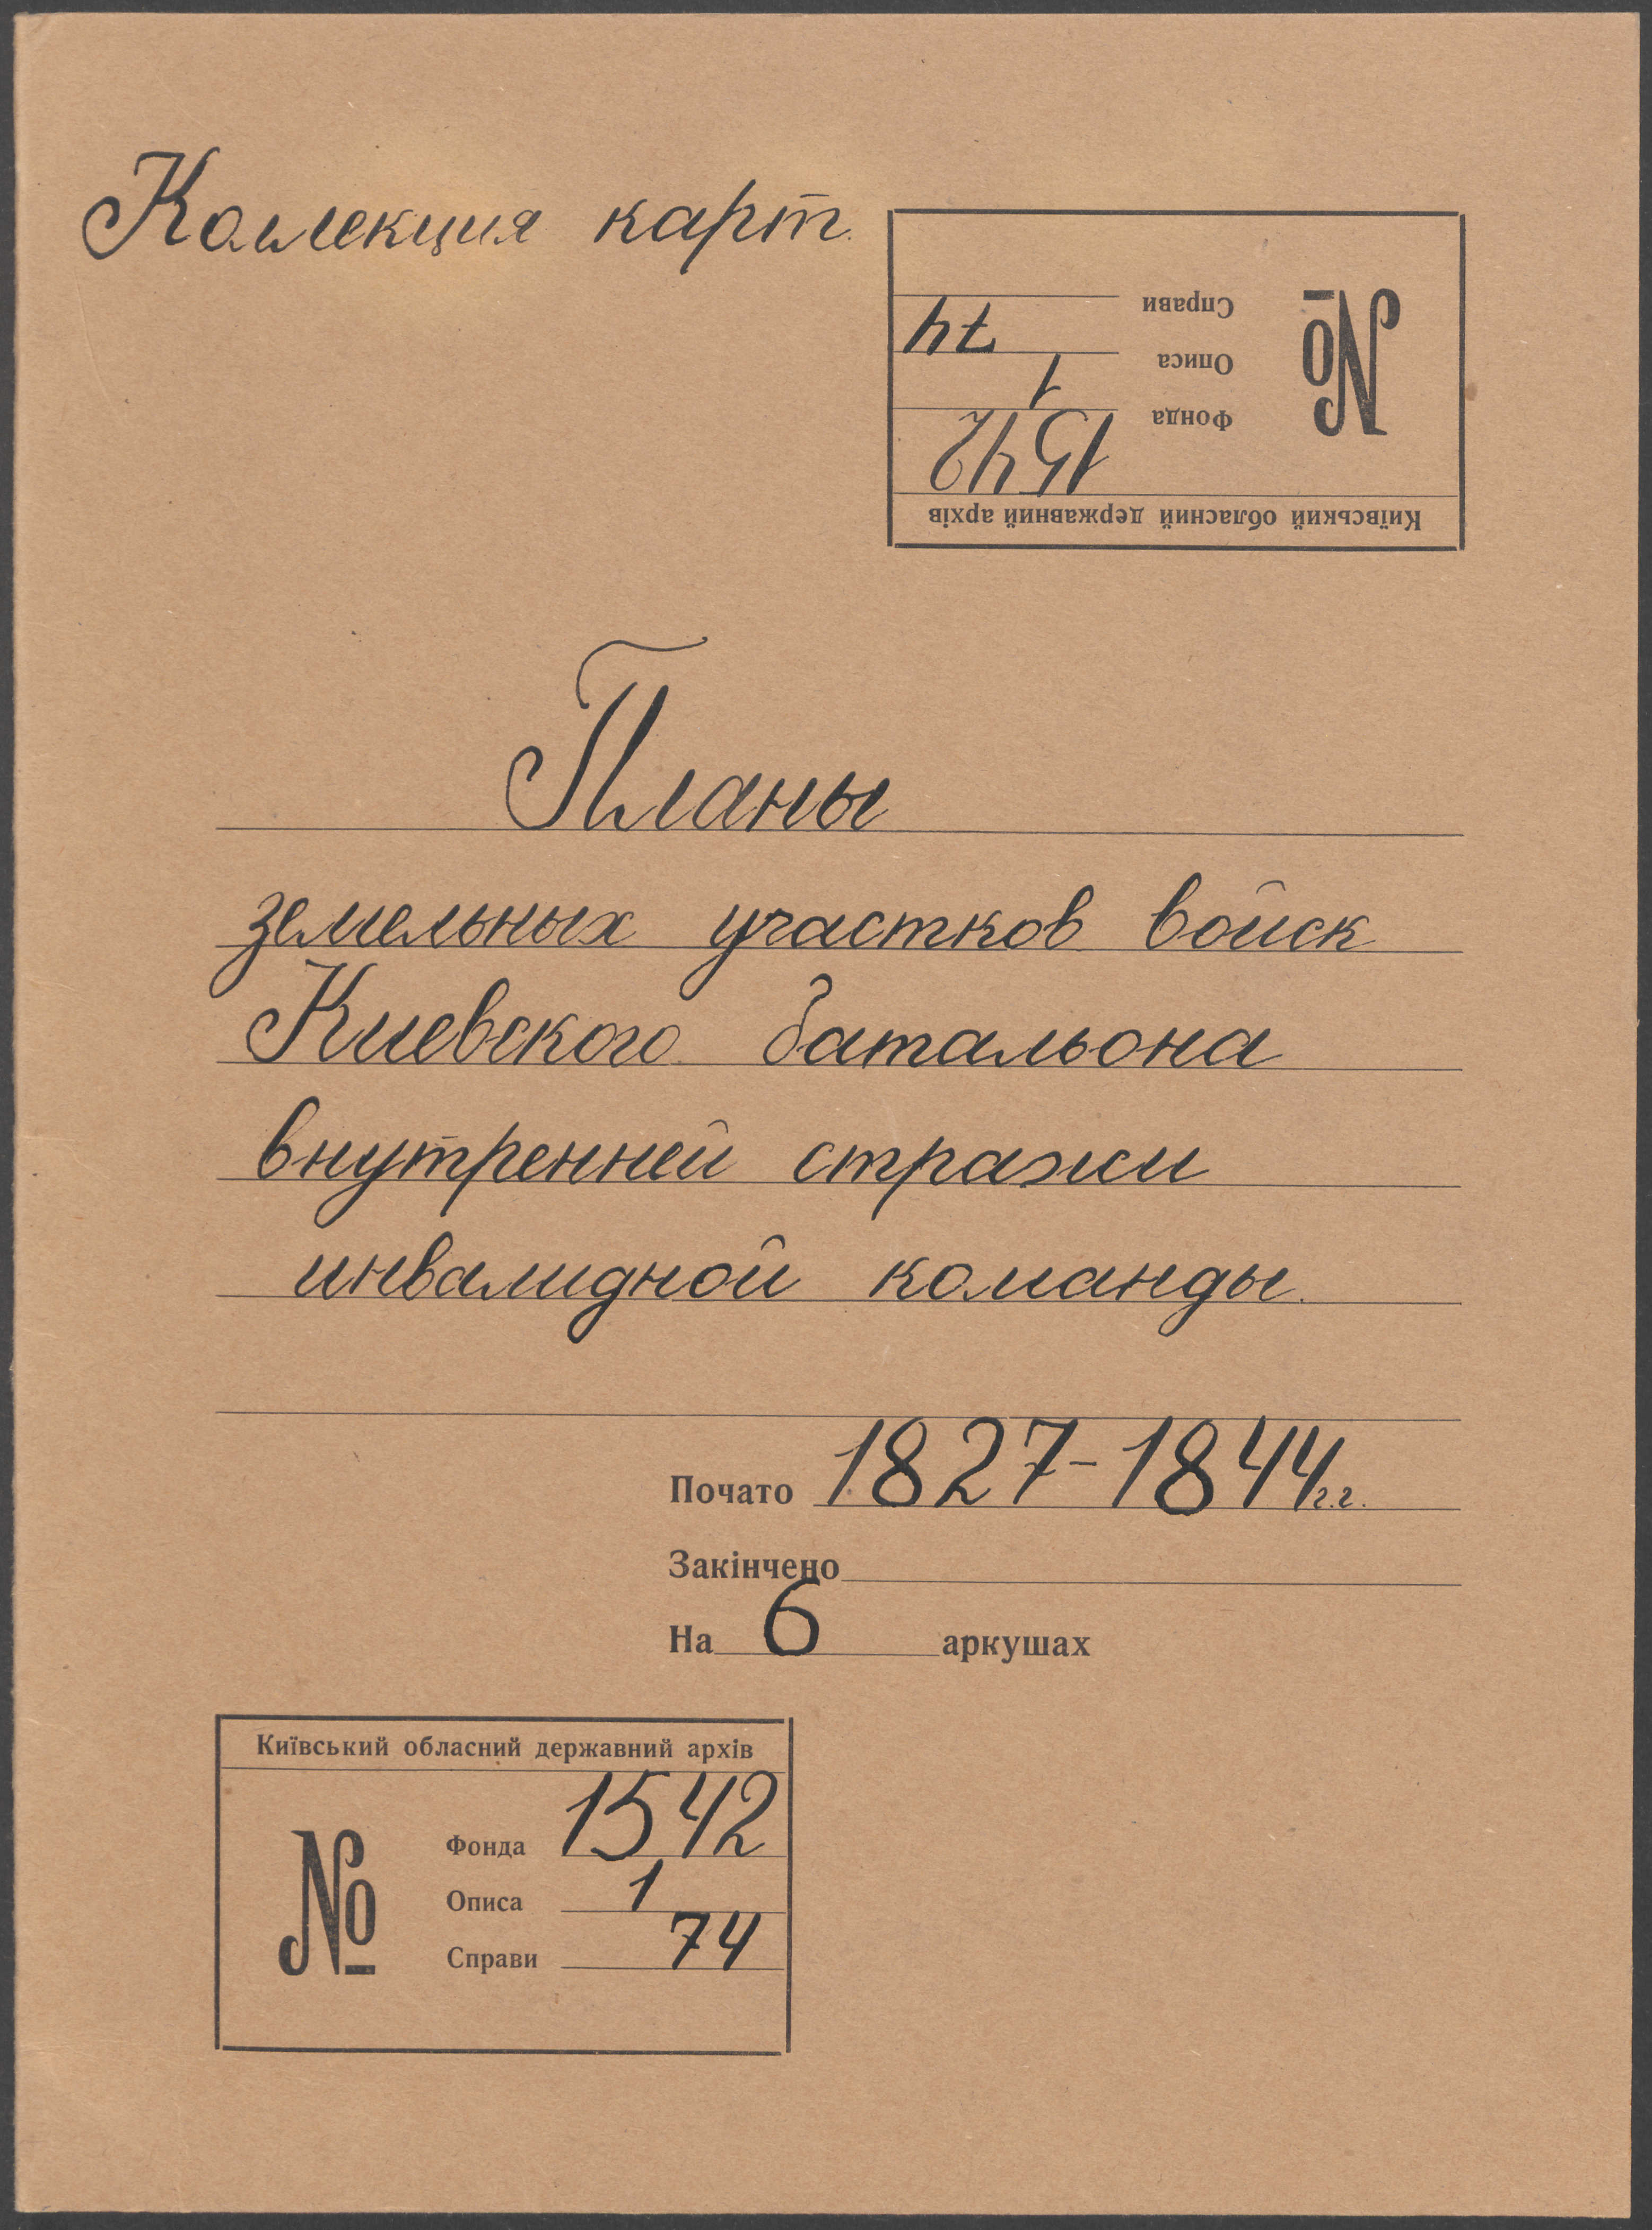 Коллекция карт.
Київський обласний державний архів
№
Фонда 1542
Описа 1
Справи 74
Планы
земельных участков войск
Киевского батальона
внутренней стражи
инвалидной команды.
Почато 1827-1844 г.г.
Закінчено
На 6 аркушах
Київський обласний державний архів
№
Фонда 1542
Описа 1
Справи 74